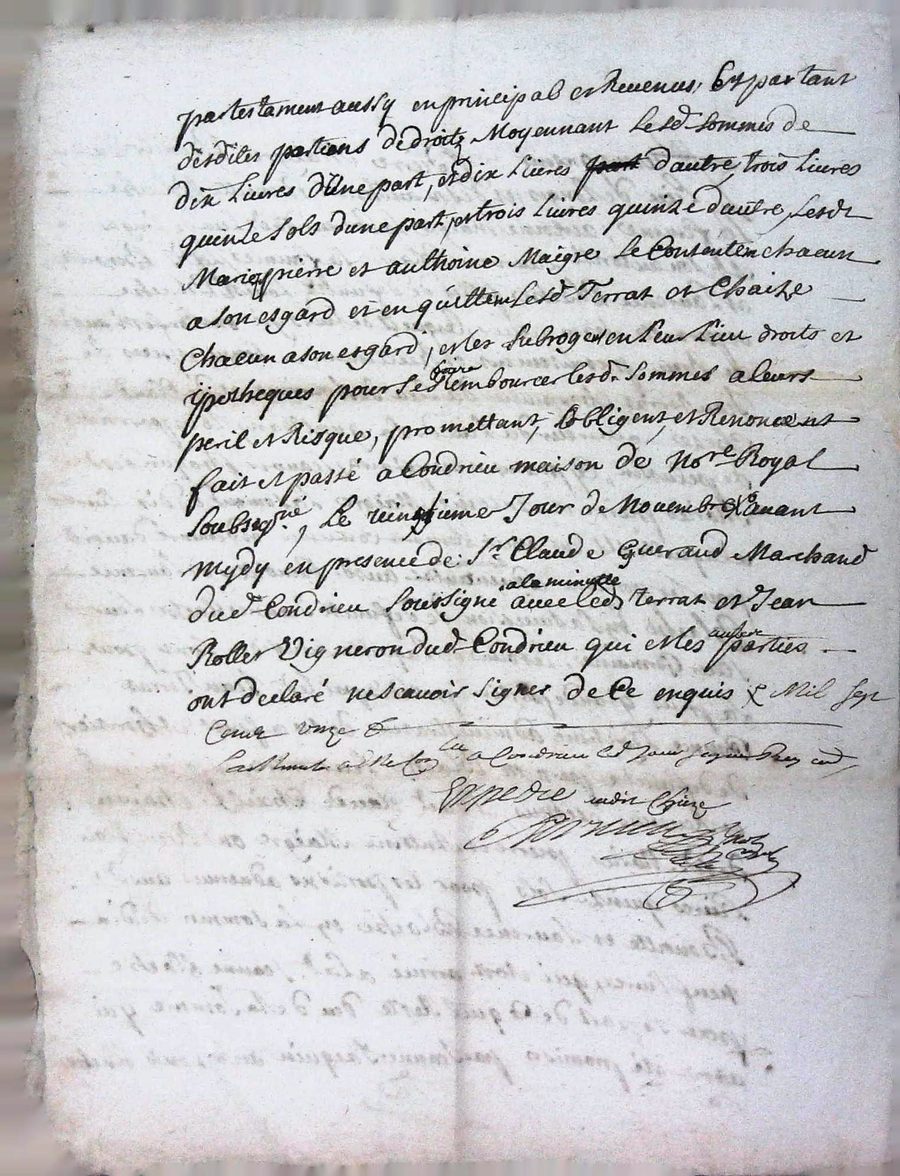 par testament aussy en principal et Revenus, Et partant
desdites portions de droitz Moyennant lesd. sommes de
dix Livres d'une part, et dix Livres part d'autre, trois Livres
quinze sols dune part, et trois Livres quinze d'autre, Lesd.
Marie, pierre et anthoine Maigre se Contentent chacun
a son esgard et en quittent lesd. Terrat et Chaize
Chacun a son esgard, et les subrogent en leur Lieu droits et
ypotheques pour se faire Rembourcer lesd. sommes a leurs
peril et Risque, promettant, obligent, et Renoncent
fait et passé a Condrieu maison de no.re Royal
Soubsigné, Le vingtieme Jour de Novembre avant
mydy en presence de Sr. Claude Gueraud Marchand
dud. Condrieu soussigné a la minutte avec led. terrat et Jean
Rollet Vigneron dud. Condrieu qui et les autres parties
ont declaré ne scavoir signer de Ce enquis & Mil Sept
Cent onze &
La Minute a Condrieu
Expedié